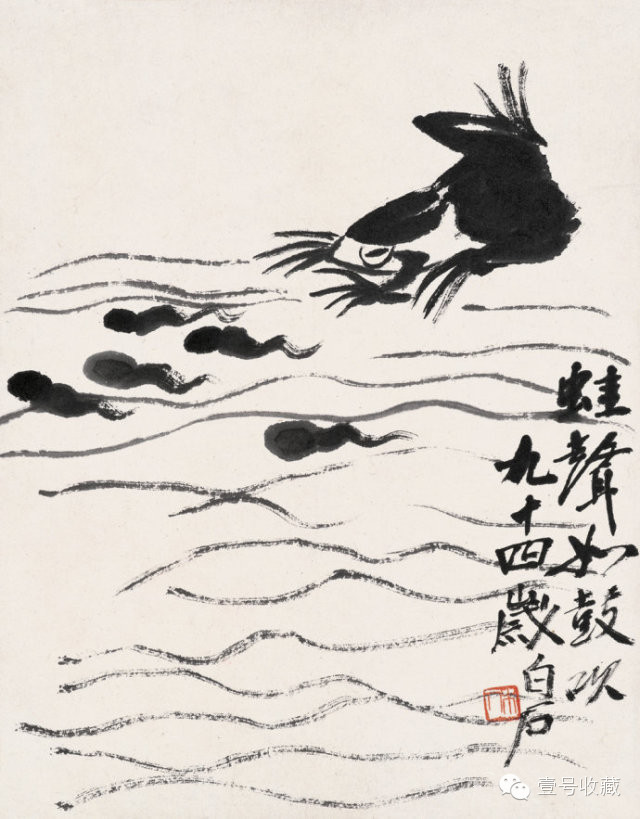 蛙聲如鼓吹
九十四歲白石
壹号收藏